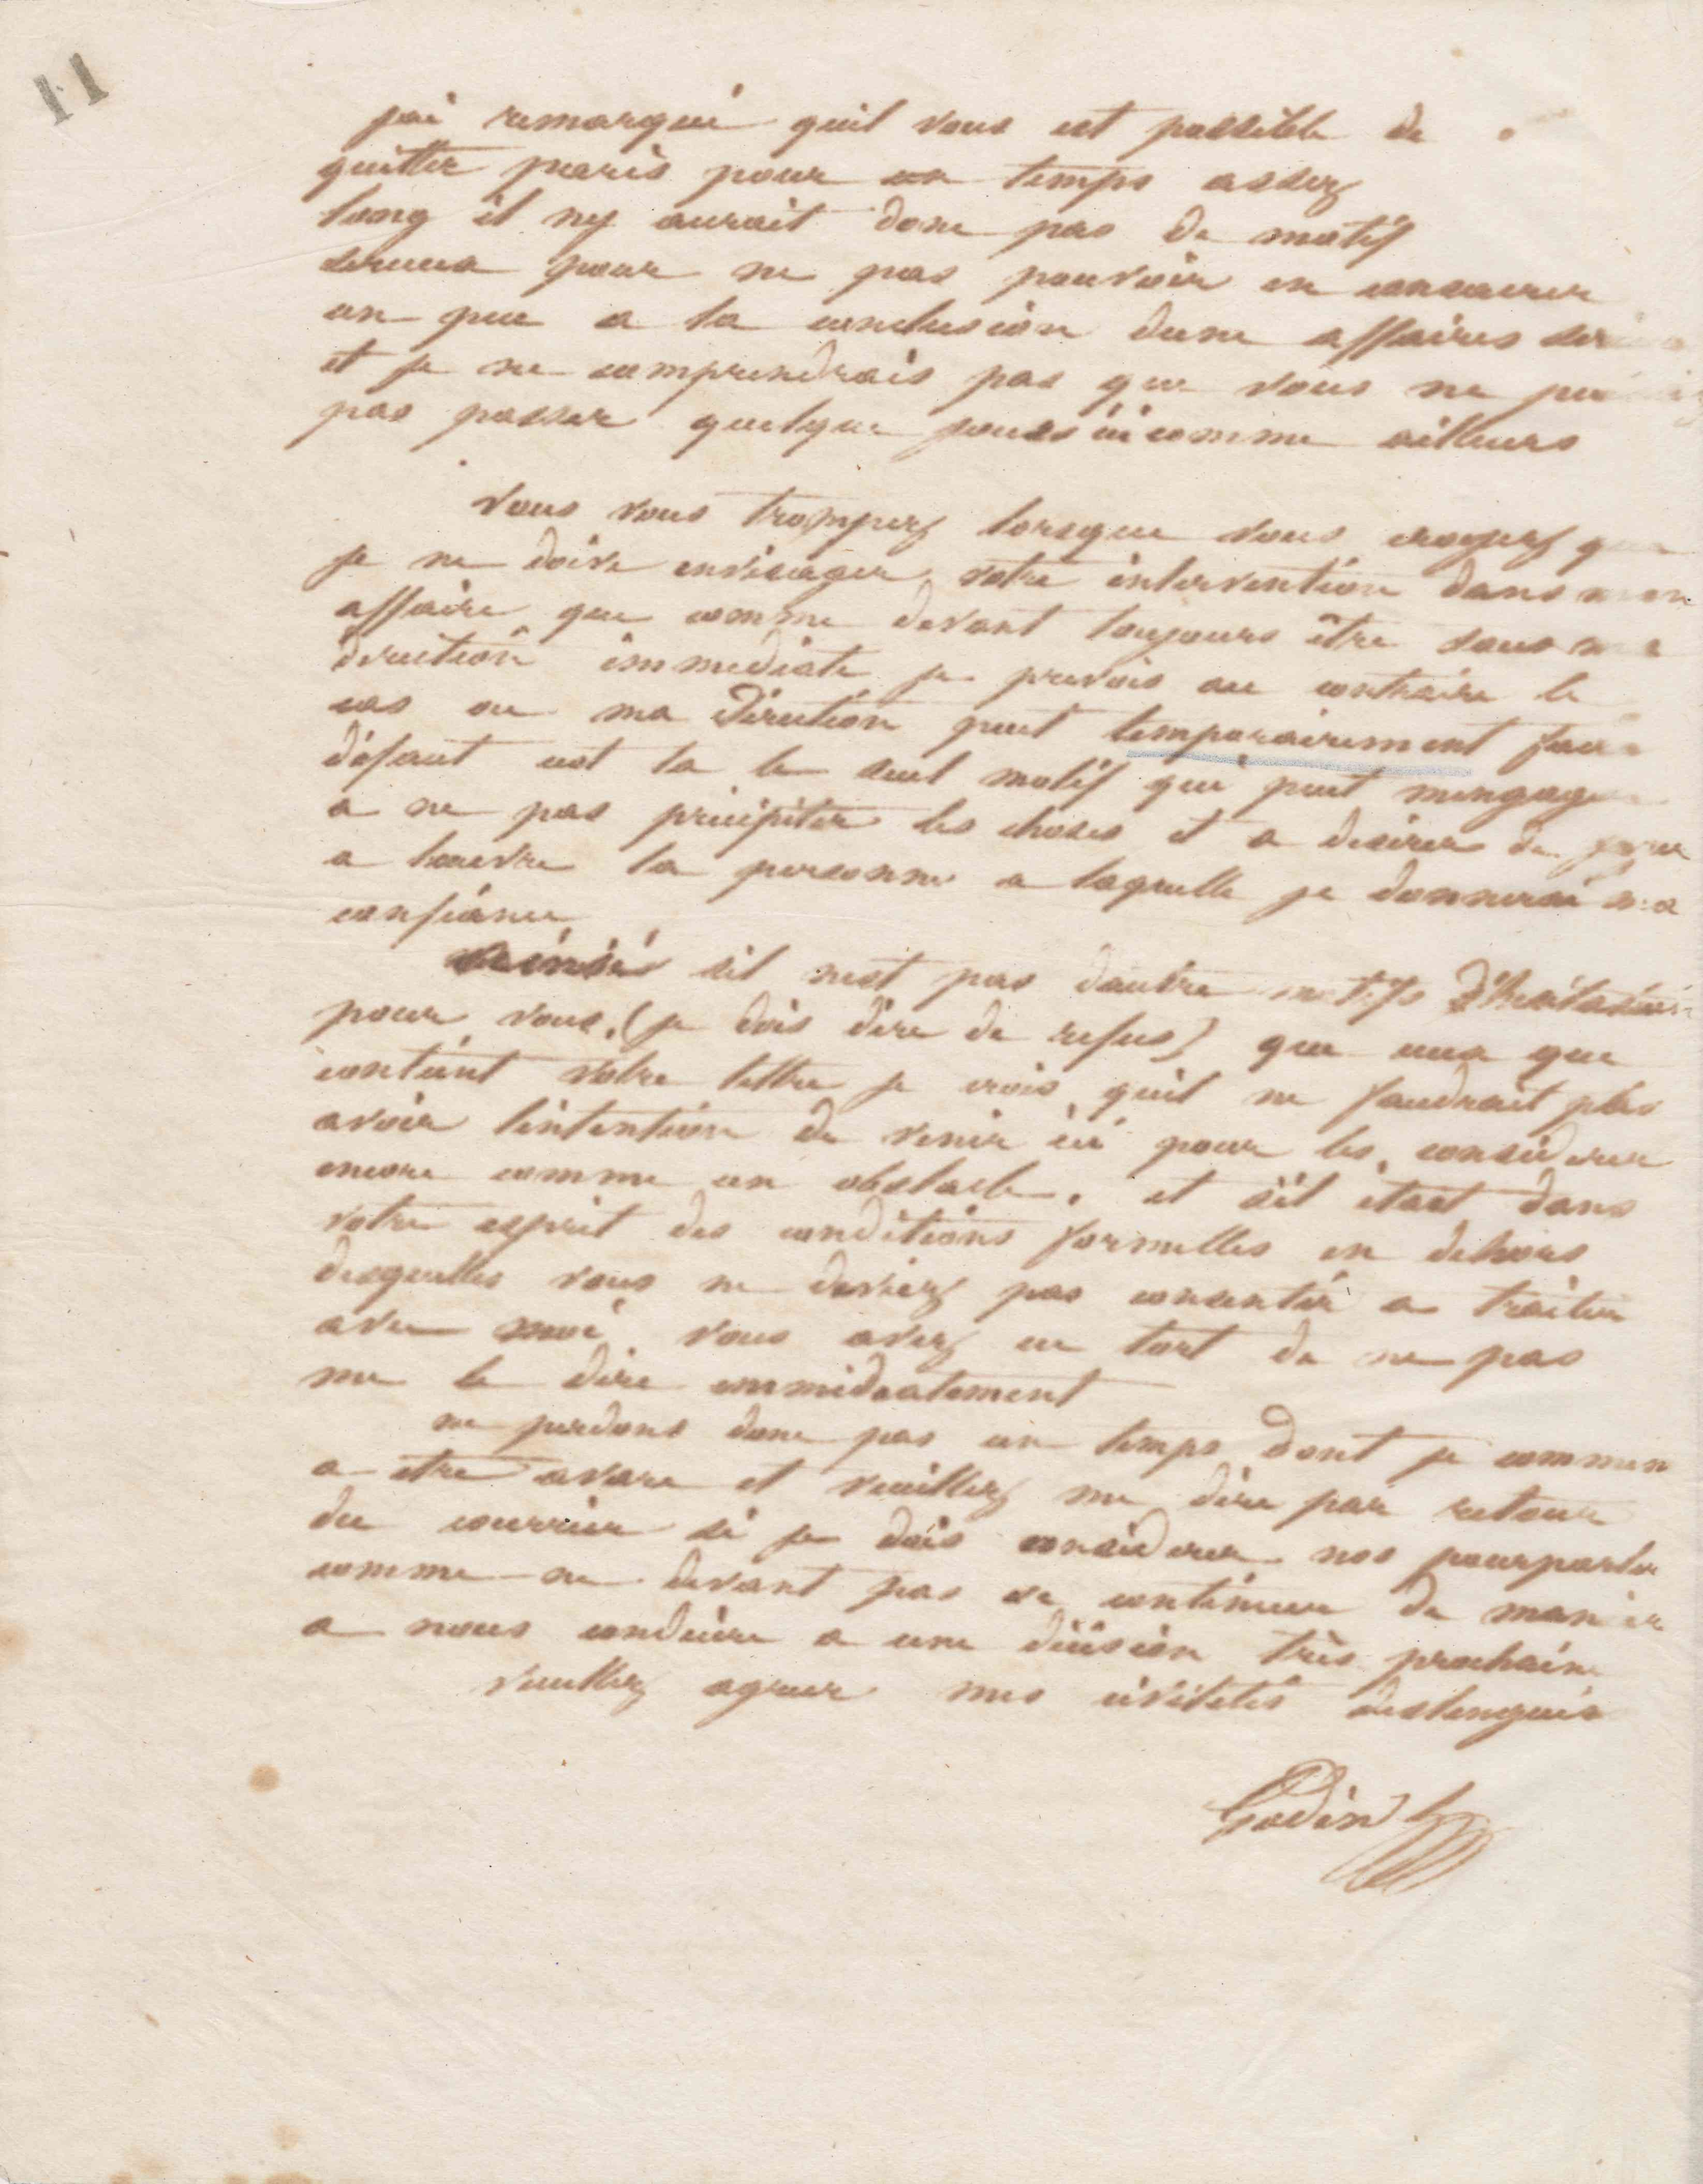 11
jai remarqué quil vous est possible de
quitter paris pour un temps assez
long il ny aurait donc pas de motif
serieux pour ne pas pouvoir en consacrer
un peu a la conclusion dune affaires
et je ne comprendrais pas que vous ne
pas passer quelque jours ici comme ailleurs
vous vous trompez lorsque vous croyez
je ne doive envisager votre intervention dans mon
affaire que comme devant toujours être sous ma
direction immediate je prevois au contraire le
cas ou ma direction peut temporairement faire
défaut cest la le seul motif qui peut mengager
a ne pas précipiter les choses et a desirer de
a loeuvre la personne a laquelle je donnerai ma
confiance
sil nest pas dautre motifs d'hesitation
pour vous (je dois dire de refus) que ceux que
contient votre lettre je crois quil ne faudrait plus
avoir lintention de venir ici pour les considerer
encore comme un obstacle. et sil etait dans
votre esprit des conditions formelles en dehors
desquelles vous ne deviez pas consentir a traiter
avec moi vous avez eu tort de ne pas
me le dire immediatement
ne perdons donc pas un temps dont je commen
a etre avare et veuillez me dire par retour
du courrier si je dois considerer nos pourparler
comme ne devant pas se continuer de manière
a nous conduire a une décision très prochaine
veuillez agreer mes civilités distingués
Godin